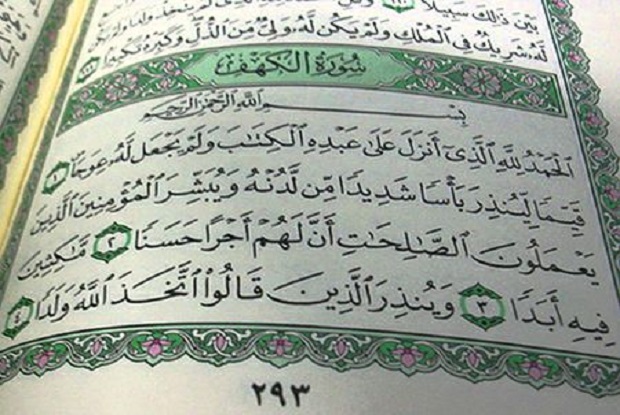 بَيْنَ ذَٰلِكَ سَبِيلًا ١١٠
لَّهُۥ شَرِيكٌ فِي ٱلْمُلْكِ وَلَمْ يَكُن لَّهُۥ وَلِيٌّ مِّنَ ٱلذُّلِّ وَكَبِّرْهُ تَكْبِيرًۢا ١١١
سُورَةُ الكَهْفِ
بِسْمِ ٱللَّهِ ٱلرَّحْمَٰنِ ٱلرَّحِيمِ
ٱلْحَمْدُ لِلَّهِ ٱلَّذِىٓ أَنزَلَ عَلَىٰ عَبْدِهِ ٱلْكِتَٰبَ وَلَمْ يَجْعَل لَّهُۥ عِوَجَا ۜ ١
قَيِّمًا لِّيُنذِرَ بَأْسًا شَدِيدًا مِّن لَّدُنْهُ وَيُبَشِّرَ ٱلْمُؤْمِنِينَ ٱلَّذِينَ
يَعْمَلُونَ ٱلصَّٰلِحَٰتِ أَنَّ لَهُمْ أَجْرًا حَسَنًا ٢ مَّٰكِثِينَ
فِيهِ أَبَدًا ٣ وَيُنذِرَ ٱلَّذِينَ قَالُوا۟ ٱتَّخَذَ ٱللَّهُ وَلَدًا ٤
٢٩٣